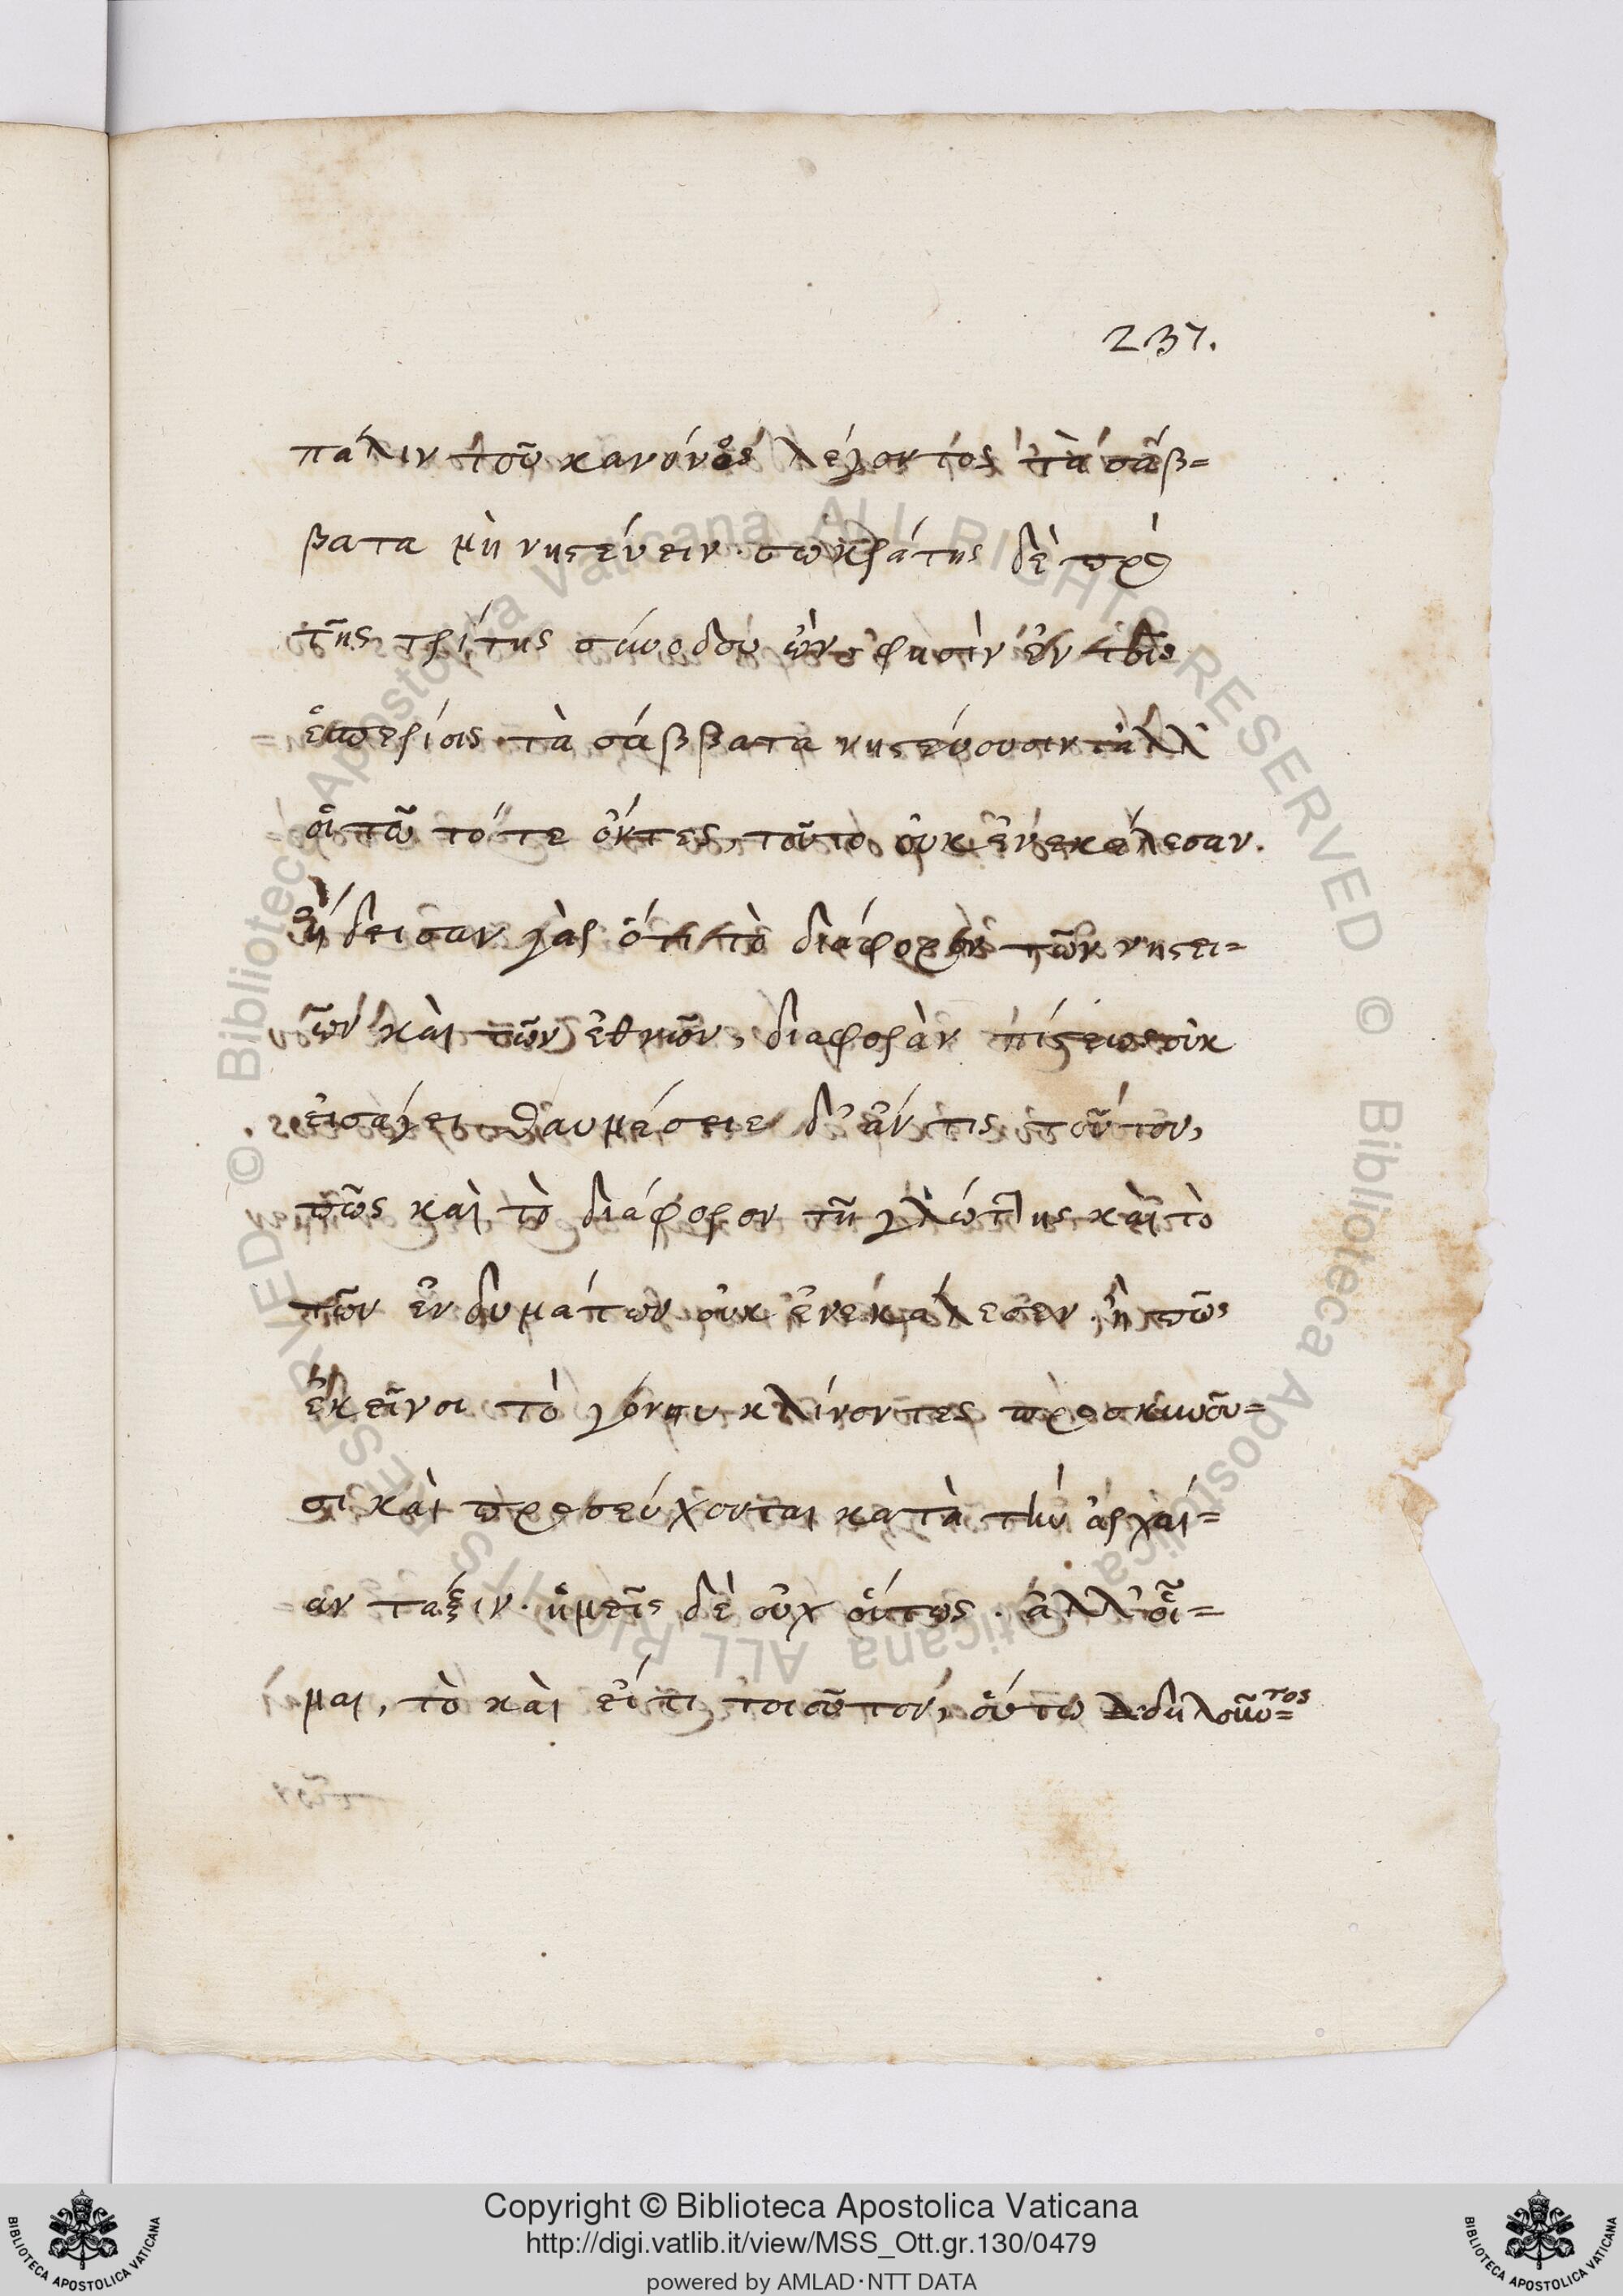 237.
πάλιν τοῦ κανόνος λέγοντος τὰ σάβ=
βατα μὴ νηστεύειν. σωκράτης δὲ πρὸ
τῆς τρίτης συνόδου ὢν φησὶν ἐν τοῖς
ἑσπερίοις τὰ σάββατα νηστεύουσιν ἀλλ'
οἱ τῶ τότε ὄντες, τοῦτο οὐκ ἐνεκάλεσαν.
ἤδεισαν γὰρ ὅτι τὸ διάφορον τῶν νηστει=
ῶν καὶ τῶν ἐθνῶν, διαφορὰν πίστεως οὐκ
εἰσάγει θαυμάσειε δ' ἄν τις τοῦτον,
πῶς καὶ τὸ διάφορον τῆ γλώττης καὶ τὸ
τῶν ἐνδυμάτων οὐκ ἐνεκάλεσεν. ἢ πῶς
ἐκεῖνοι τὸ γόνυ κλίνοντες προσκυνοῦ=
σι καὶ προσεύχονται κατὰ τὴν ἀρχαί=
αν ταξιν. ἡμεῖς δὲ οὐχ οὕτως. ἀλλ' οἶ=
μαι, τὸ καὶ εἴ τι τοιοῦτον, οὕτω δηλοῦν=τος
Copyright © Biblioteca Apostolica Vaticana
http://digi.vatlib.it/view/MSS_Ott.gr.130/0479
powered by AMLAD·NTT DATA
BIBLIOTECA APOSTOLICA VATICANA
BIBLIOTECA APOSTOLICA VATICANA